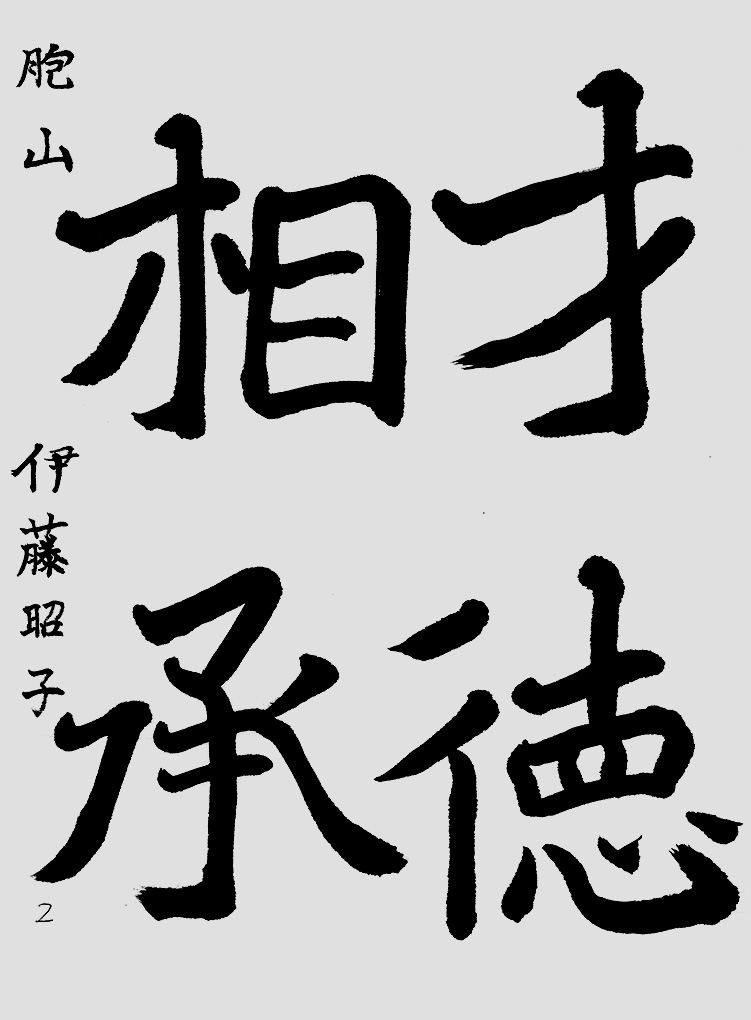 才徳
相承
胞山
伊藤昭子
2